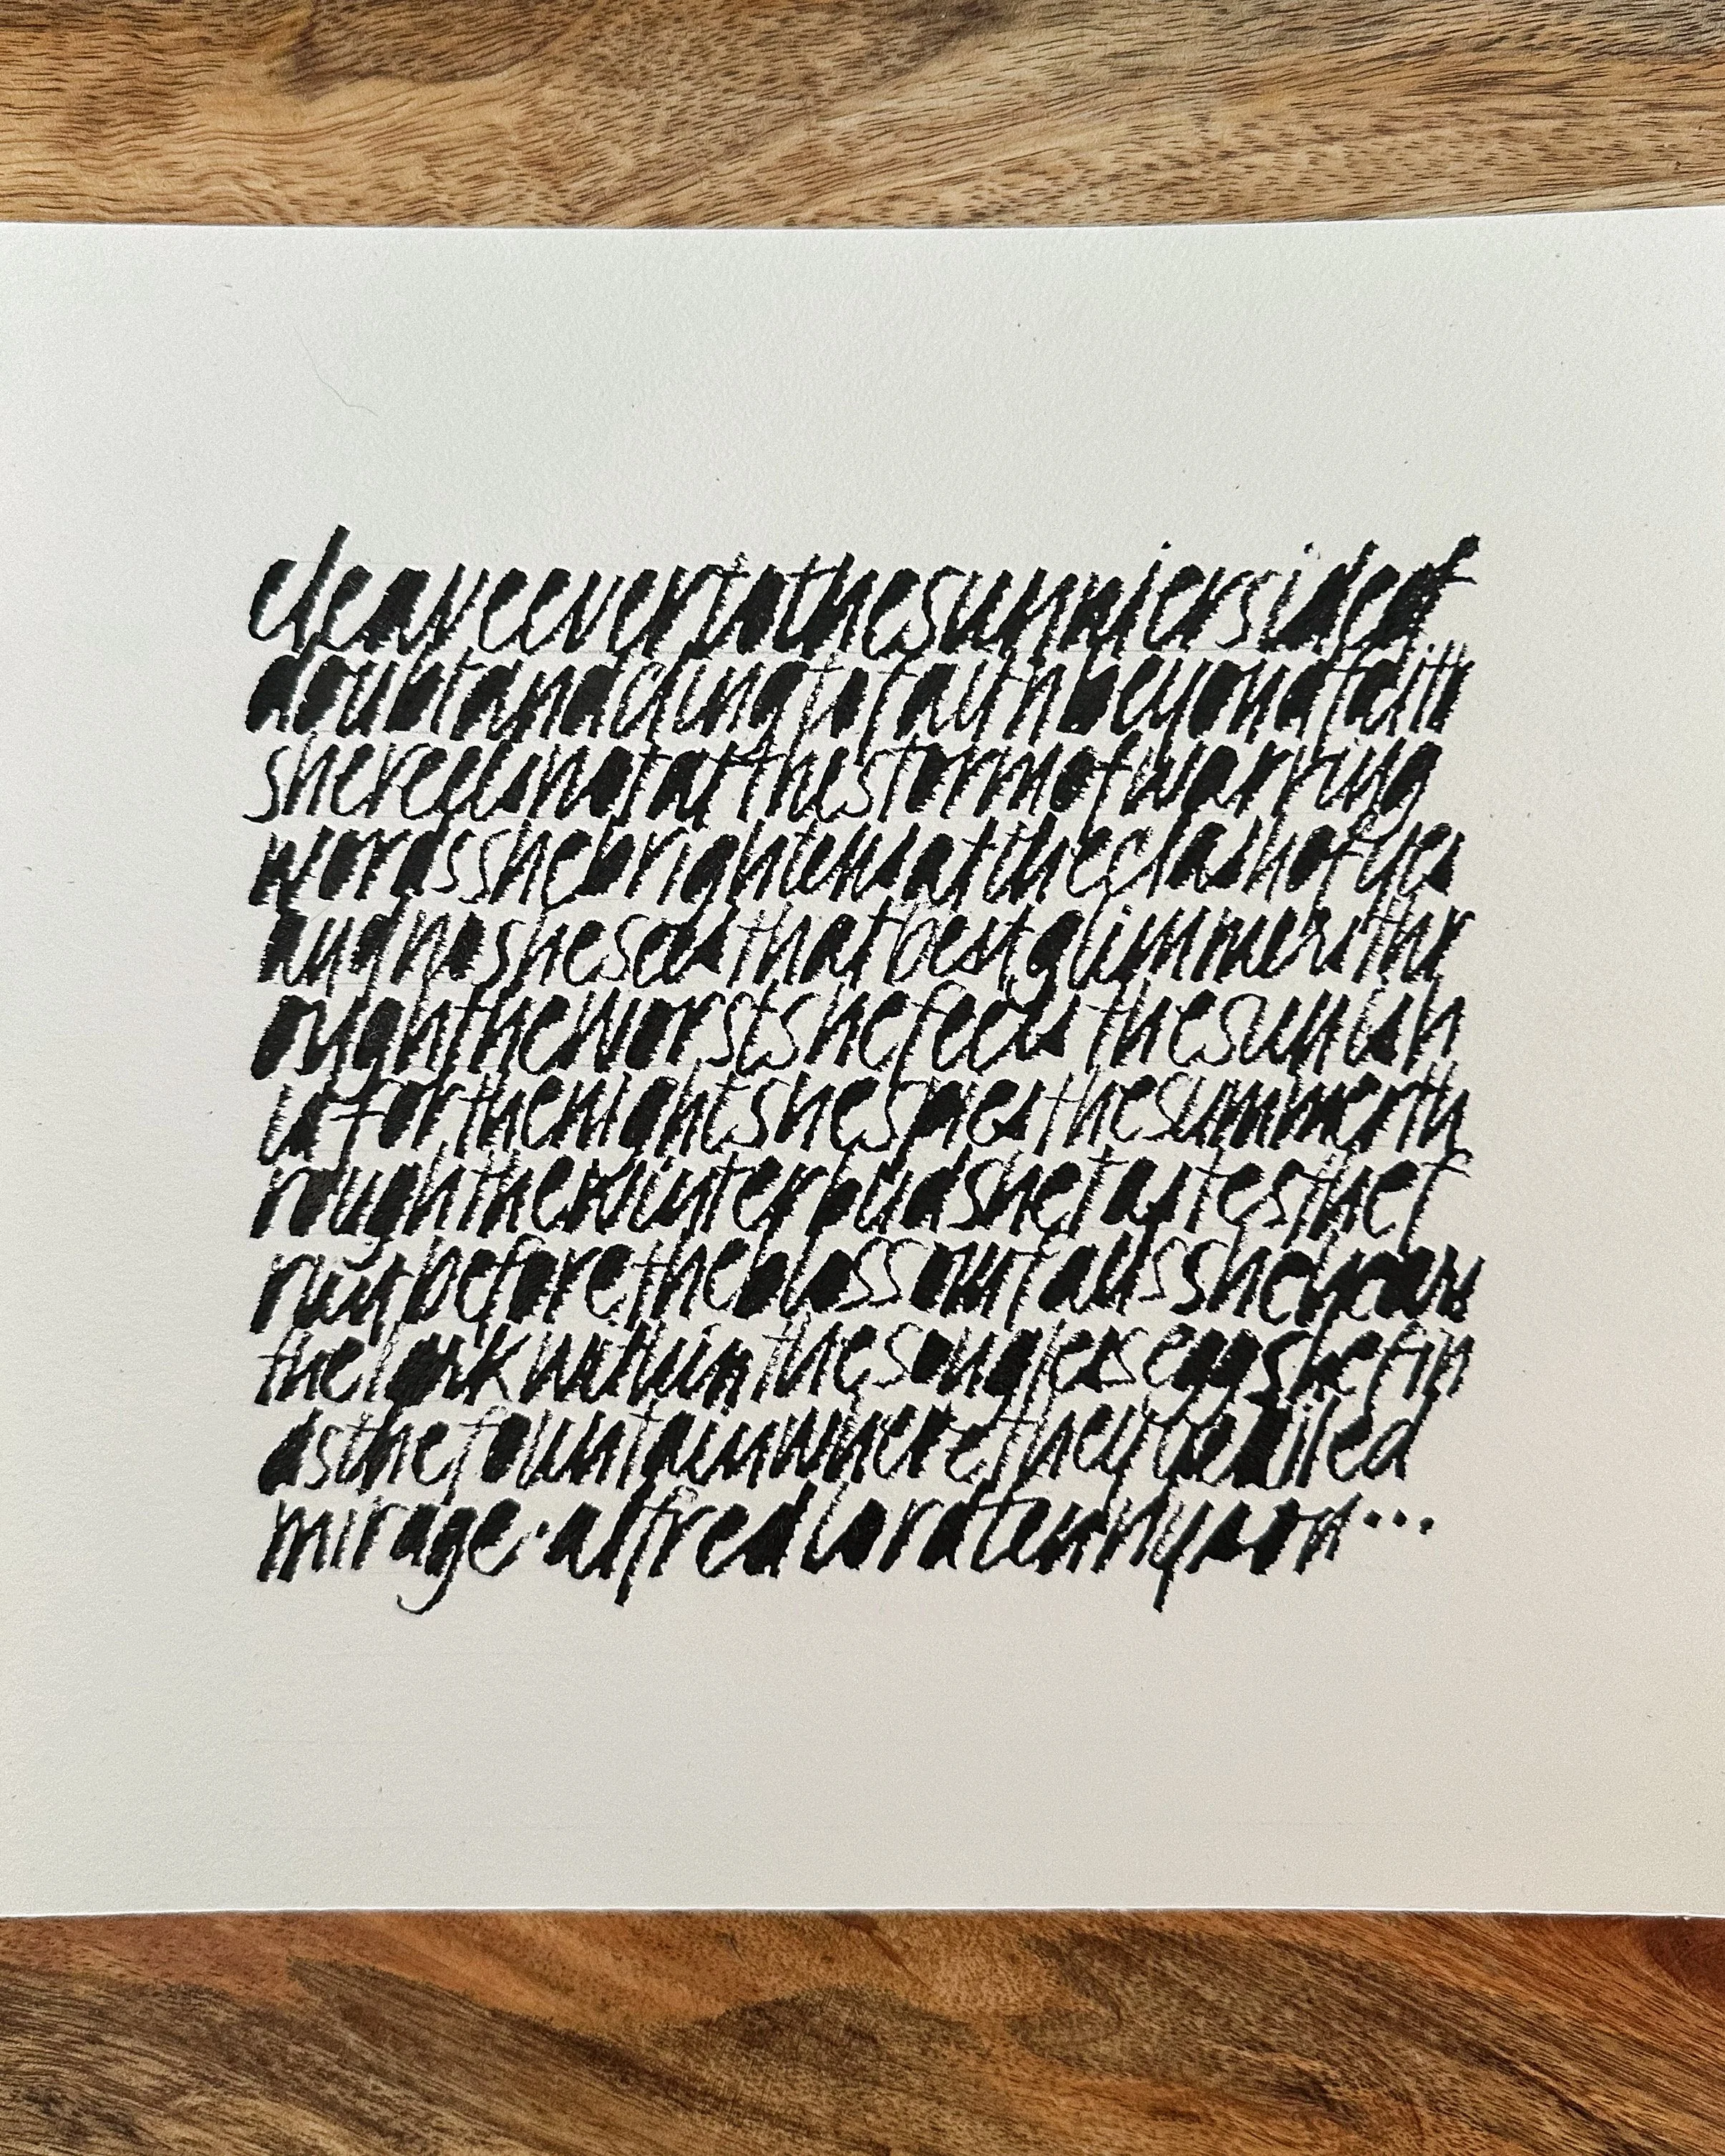 cleaveevertothesunniersideof
doubtandclingtofaithbeyondfaith
shereelsnotatthestormofwarring
wordsshebrightensattheclashofyes
andnosheseesthatbestglimmersthr
oughtheworstshefeelsthesunish
idforthenightshespiesthesummerth
roughthewinterbudshetastesthef
ruitbeforetheblossomfallsshehears
thelarkwithinthesonglesseggshefin
dsthefountainwheretheywailed
mirage·alfredlordtennyson...